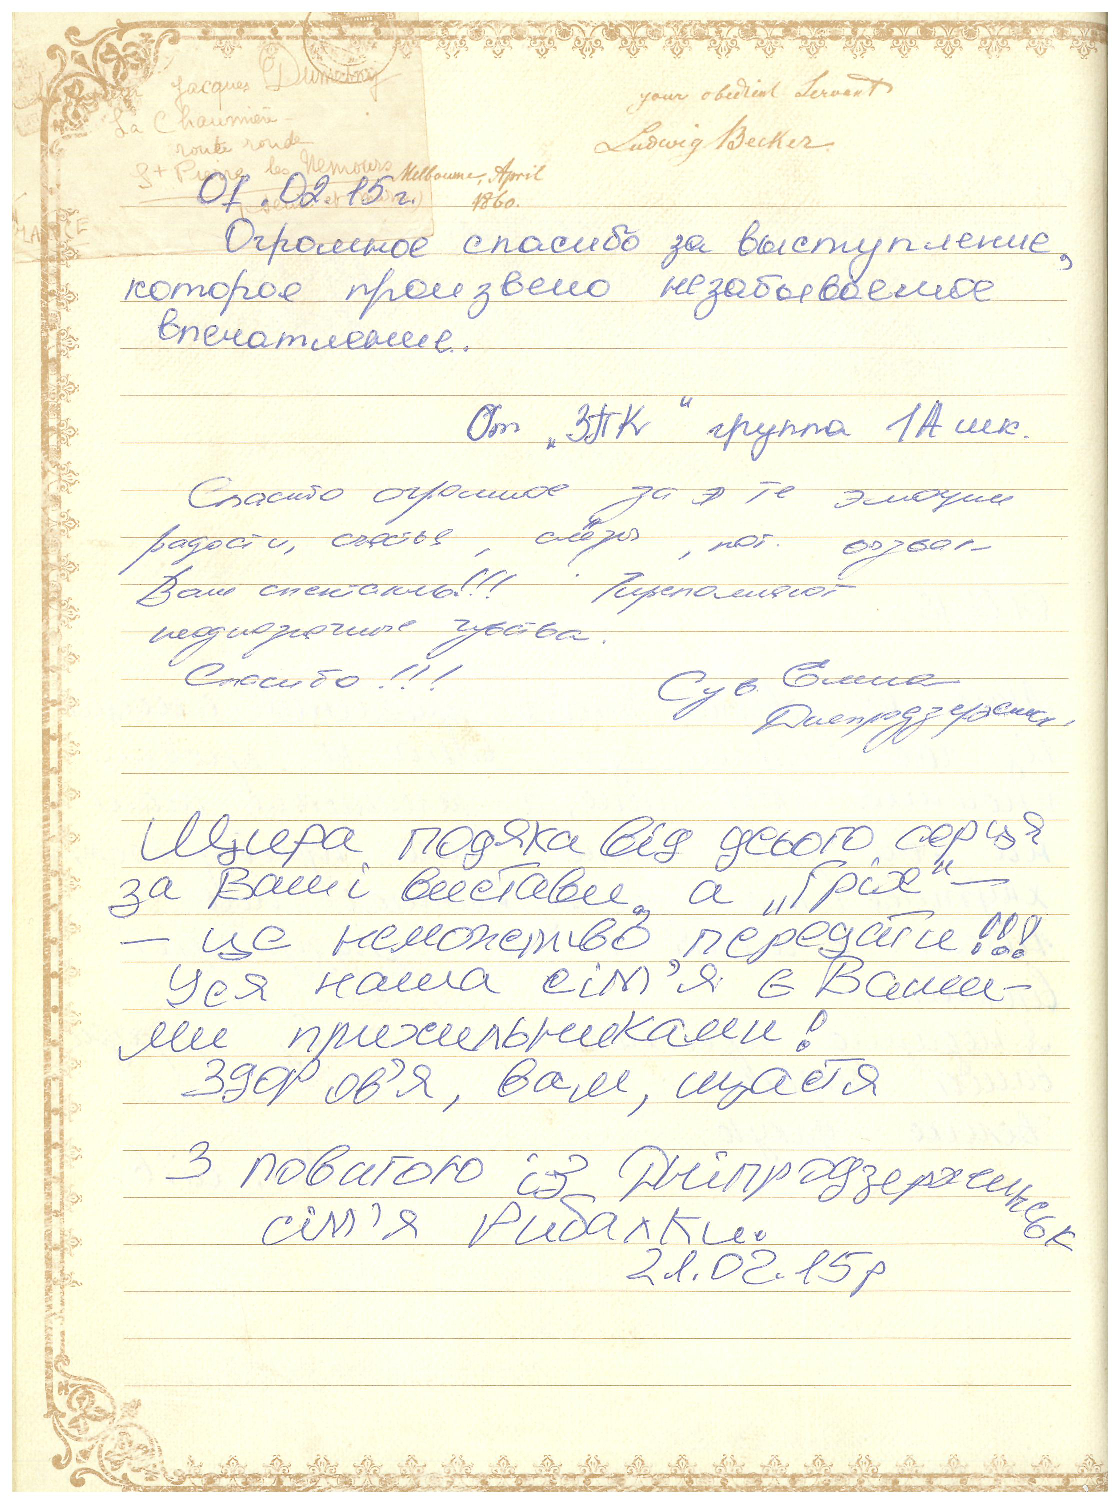 Jacques Dumorny
La Chaumière
route ronde
St Pierre les Nemours
your obedient Servant
Ludwig Becker.
Melbourne, April
1860.
01.02.15г.
Огромное спасибо за выступление,
которое произвело незабываемое
впечатление.
От „ЗПК“ группа 1А шк.
Спасибо огромное за те эмоции
радости, счастья, слёзы, кот. вызвал
Ваш спектакль!!! Переполняют
неоднозначные чувства.
Спасибо!!!
Сув. Елина
Днепродзержинск.
Щира подяка від усього серця
за Ваші вистави, а „Гріх“ –
– це неможливо передати!!!
Уся наша сім'я є Ваши-
ми прихильниками!
Здоров'я, вам, щастя
З повагою із Дніпродзержинськ
сім'я Рибалки.
21.02.15р